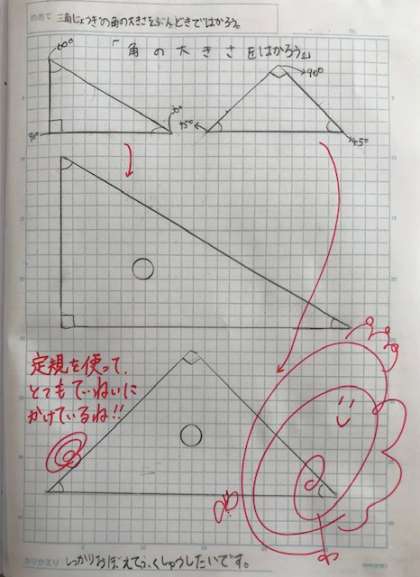 めあて 三角じょうぎの角の大きさをぶんどきではかろう。
「角の大きさをはかろう」
60°
90°
30°
45°
90°
45°
定規を使って、
とてもていねいに
かけているね!!
ふりかえり しっかりおぼえてふくしゅうしたいです。